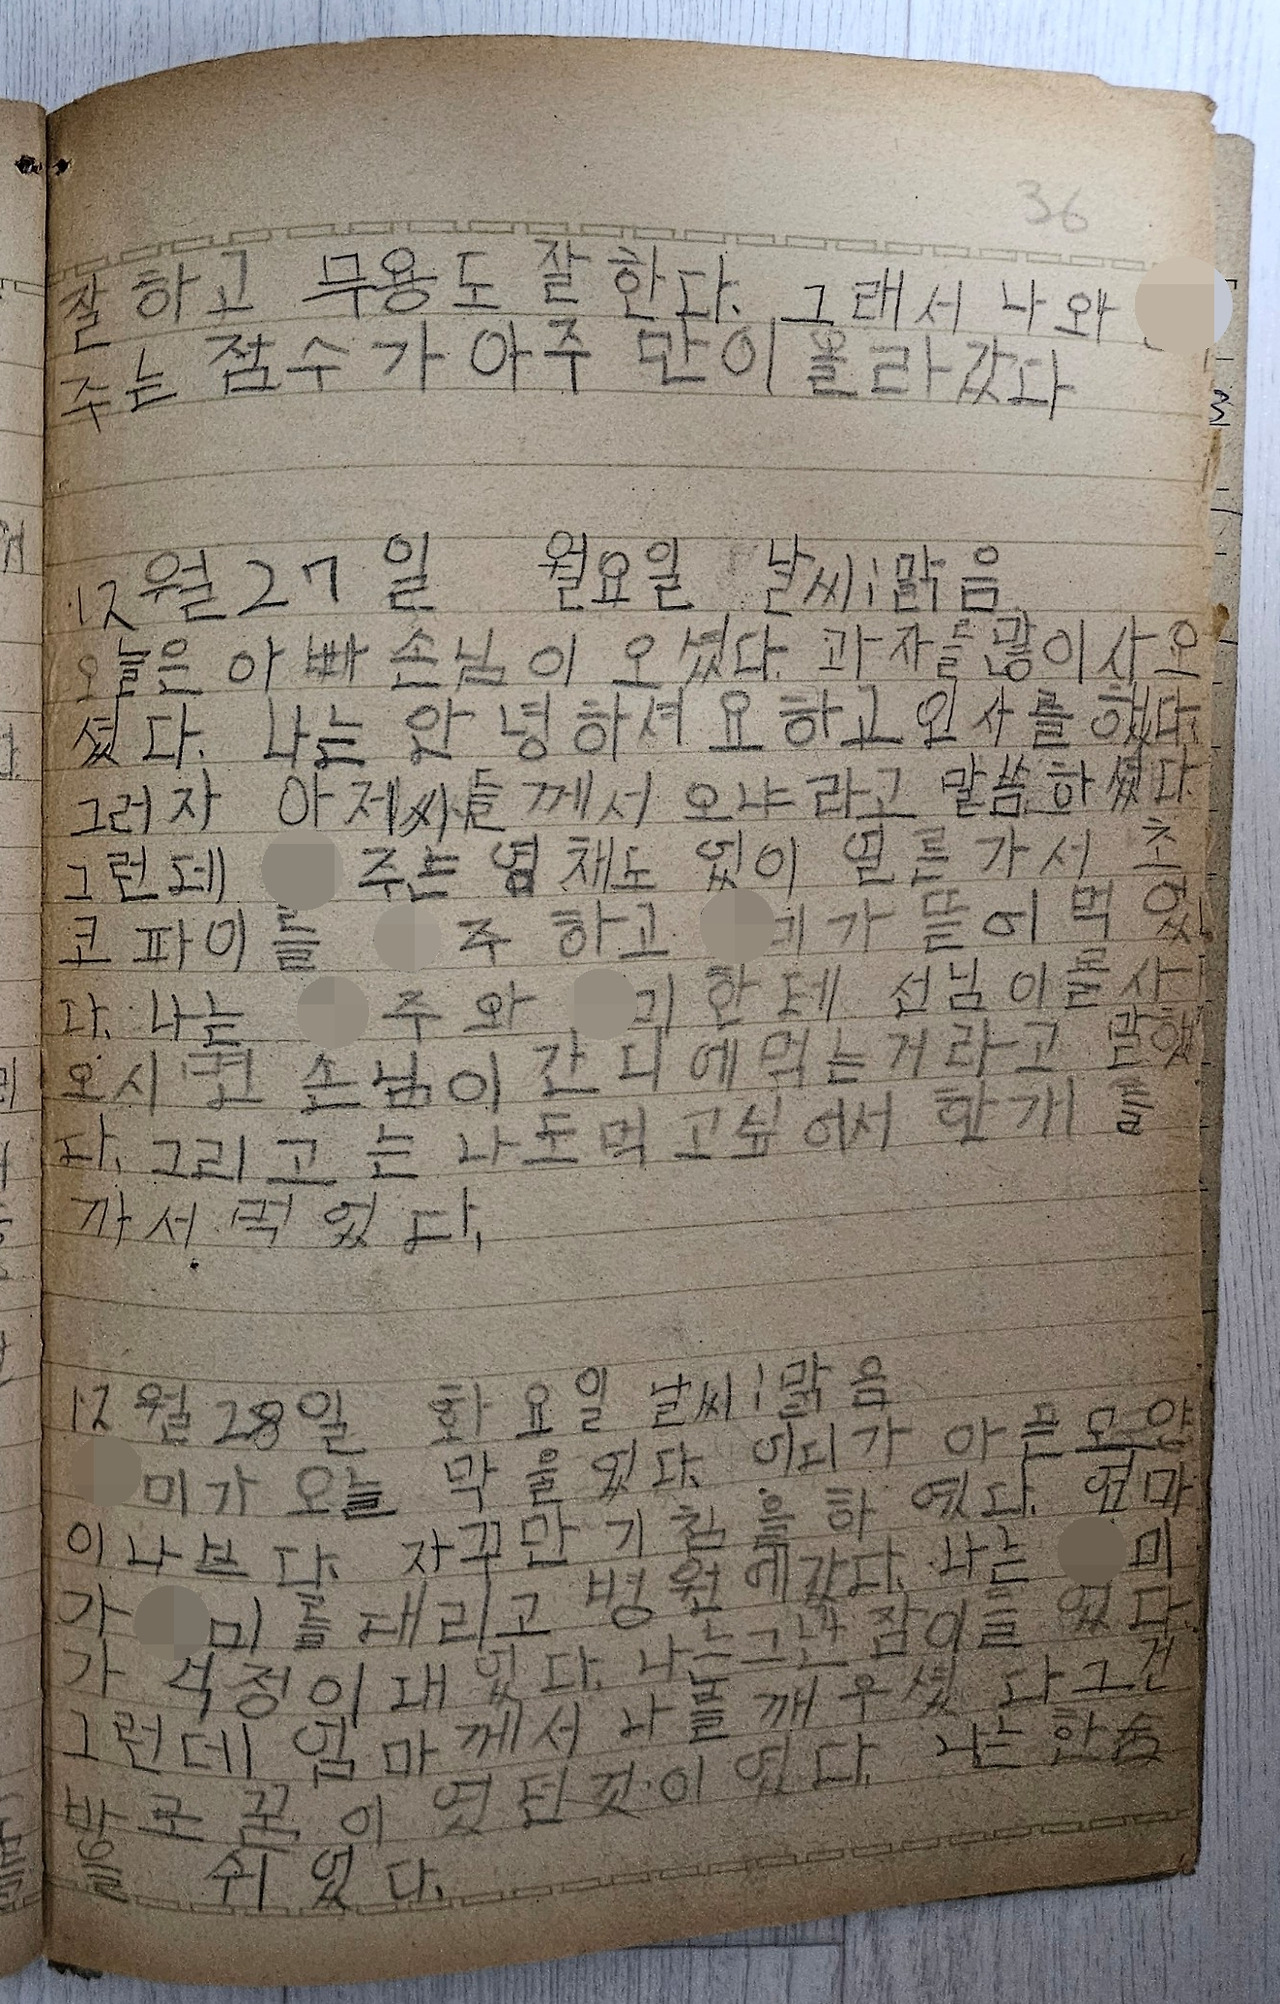 36
잘하고 무용도 잘한다. 그래서 나와
주는 점수가 아주 만이 올라갔다
12월 27일 월요일 날씨:맑음
오늘은 아빠 손님이 오셨다. 과자를 많이 사오
셨다. 나는 안녕하셔요 하고 인사를 했다.
그러자 아저씨들께서 오냐라고 말씀하셨다.
그런데 주는 염채도 없이 얼른 가서 초
코파이를 주하고 미가 뜯어먹었
다. 나는 주와 미한테 선님이
오시면 손님이 간 디에 먹는거라고 말했
다. 그리고는 나도 먹고싶어서 한개를
까서 먹었다.
12월 28일 화요일 날씨:맑음
미가 오늘 막 울었다. 어디가 아픈모양
이나브다. 자꾸만 기침을 하였다. 엄마
가 미를 대리고 병원에갔다. 나는 미
가 걱정이 대었다. 나는 그난 잠이들었다.
그런데 엄마께서 나를 깨우셨다 그건
방로 꿈이였던것이였다. 나는 한숨
을 쉬었다.